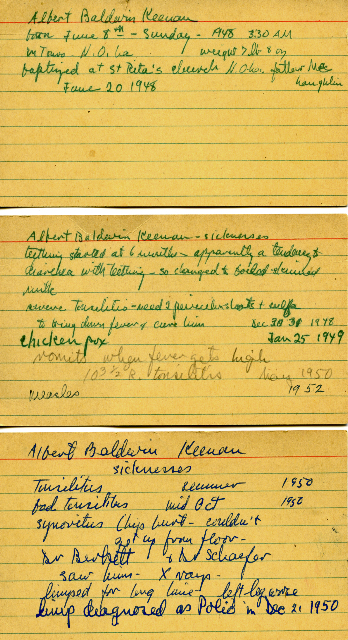 Albert Baldwin Keenan
born June 8th - Sunday - 1948 3:30 AM
in Touro - N.O. La weight 7 lb 8 oz
baptized at St Rita's church N.O. La. father Mc
Laughlin
June 20 1948
Albert Baldwin Keenan - sicknesses
teething started at 6 months - apparently a tendency to
diarrhea with teething - so changed to boiled skimmed
milk
severe tonsilitis - need 2 penicillin shots + sulfa
to bring down fever & cure him Dec 30 31 1948
chicken pox Jan 25 1949
vomits when fever gets high
103 1/2 R. tonsilitis May 1950
measles 1952
Albert Baldwin Keenan
sicknesses
Tonsilitus summer 1950
bad tonsilitus mid Oct 1950
synovitus (hip hurt - couldn't
get up from floor -
Dr Berkett & Dr Schaefer
saw him - X rays -
limped for long time - left leg worse
limp diagnosed as Polio in Dec 21 1950